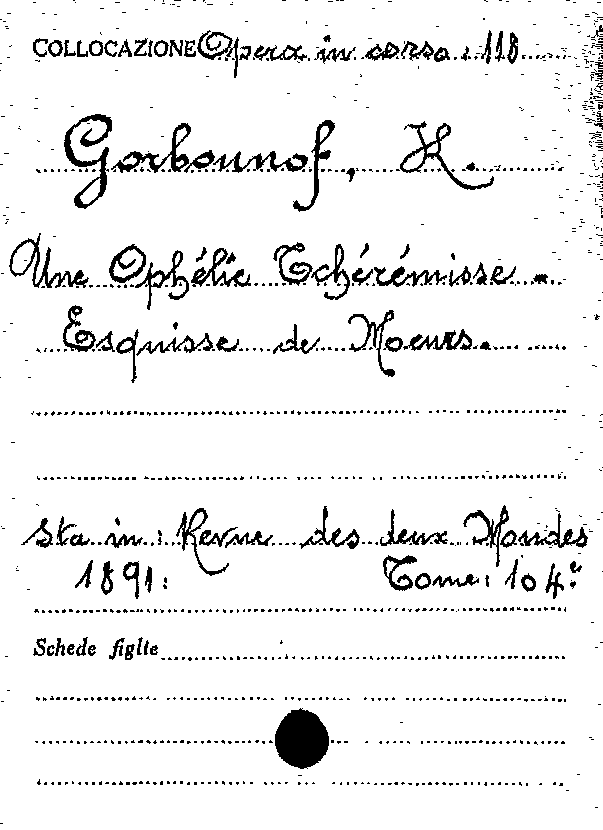 COLLOCAZIONE Opera in corso: 118
Gorbounof, K.
Une Ophélie Tchérémisse -
Esquisse de Moeurs.
Sta in: Revue des deux Mondes
1891: Tome: 104.e
Schede figlte